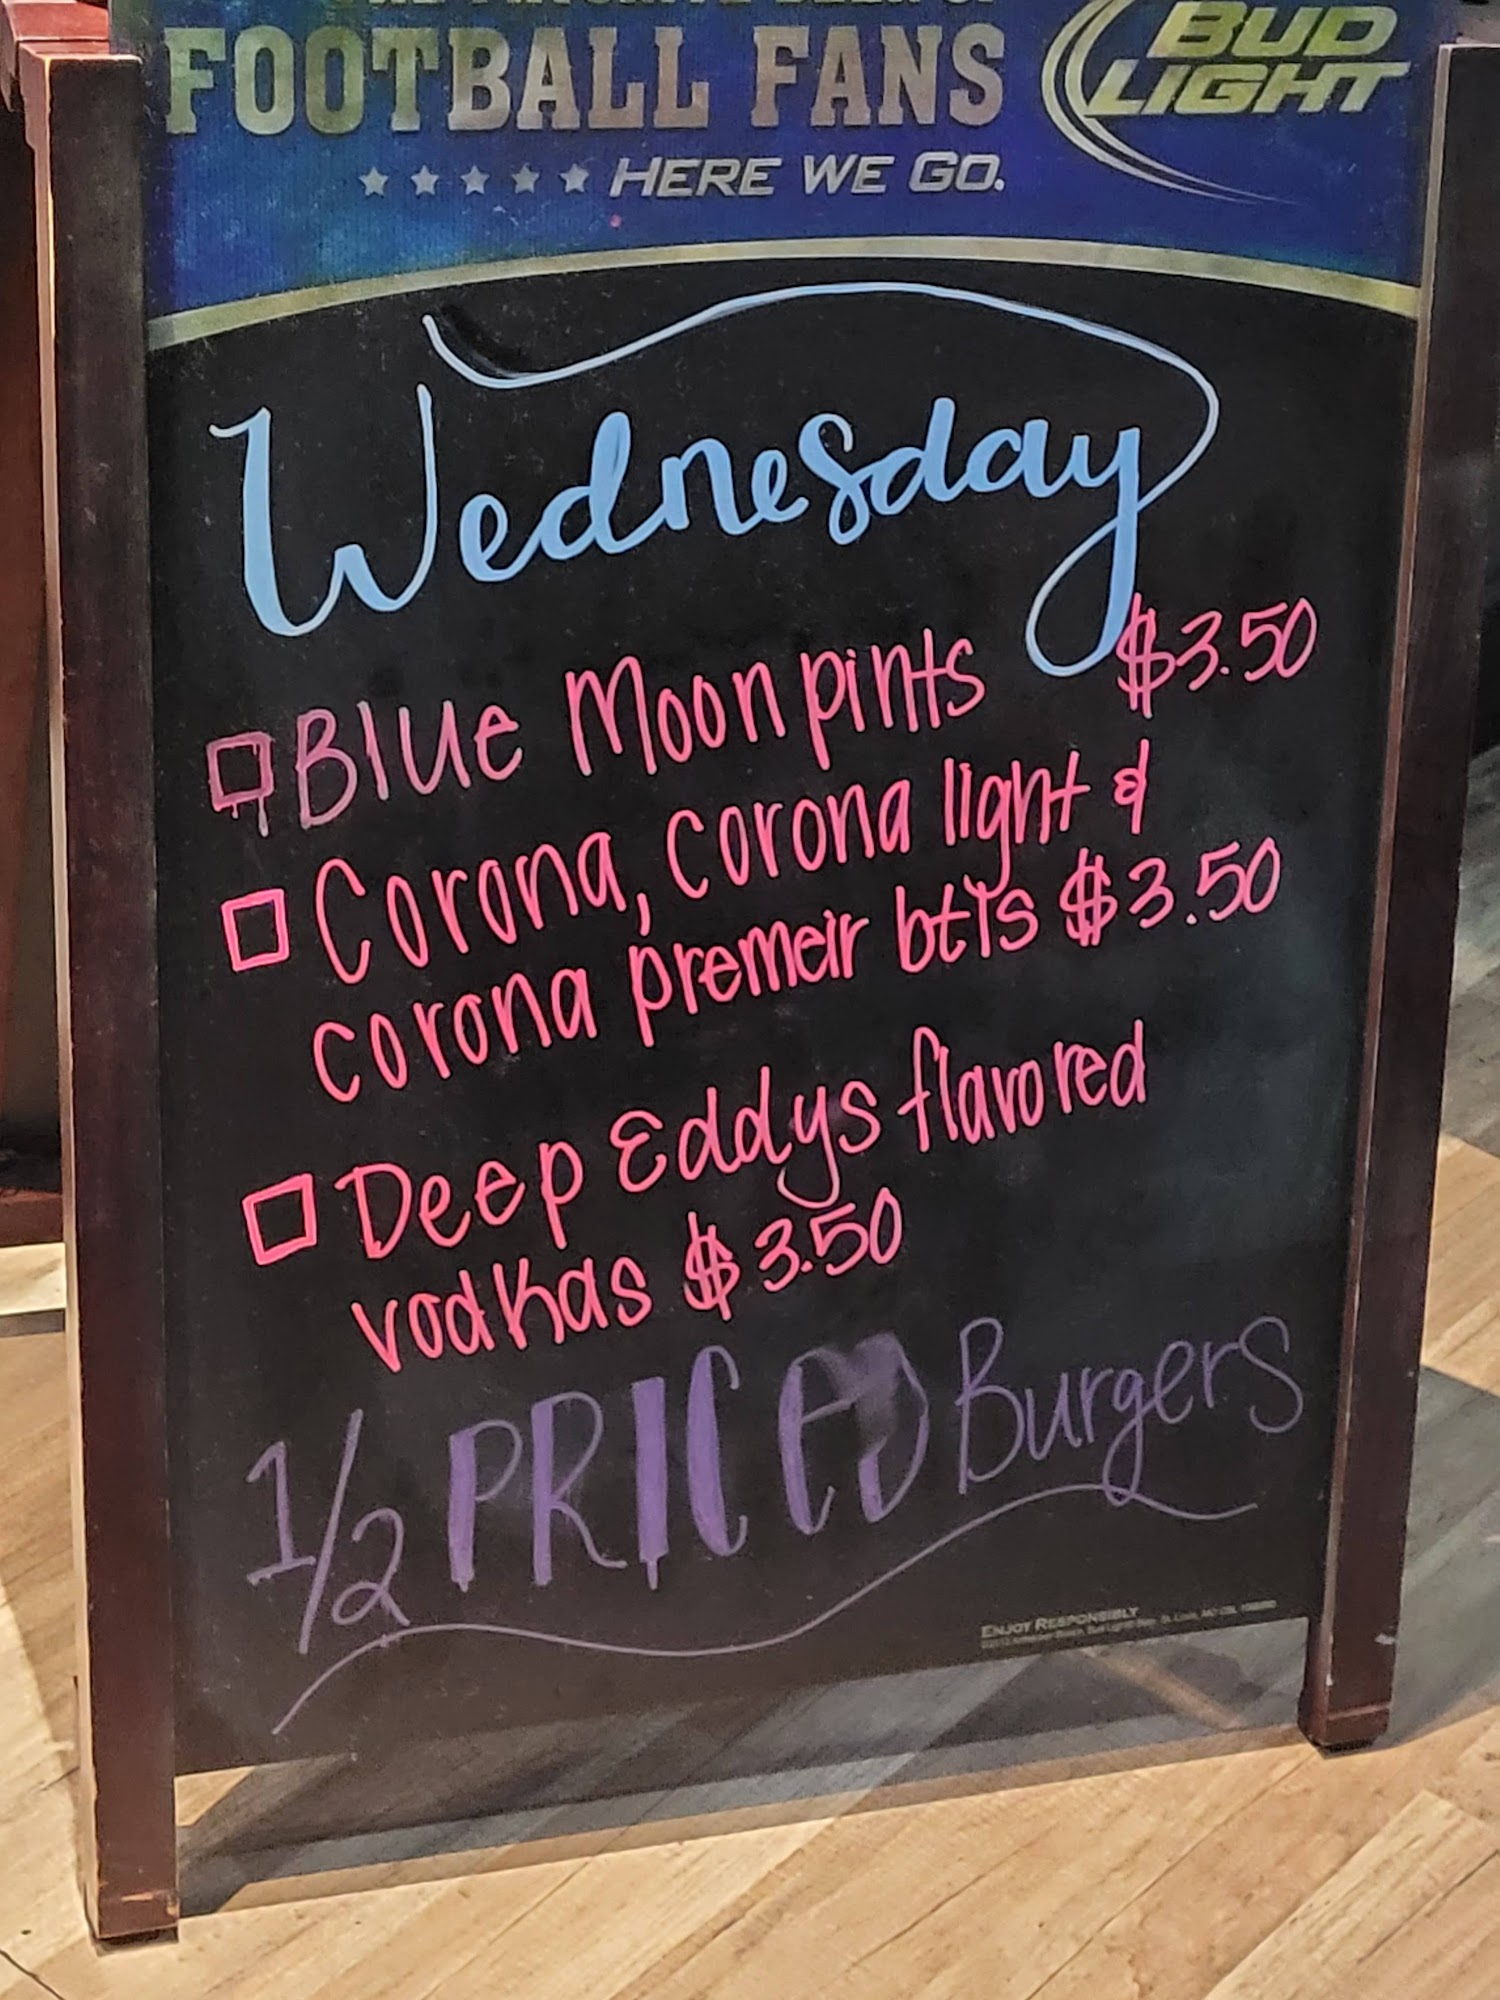 FOOTBALL FANS
BUD
LIGHT
HERE WE GO.
Wednesday
Blue Moon pints $3.50
Corona, corona light &
corona premeir btls $3.50
Deep Eddys flavored
vodkas $3.50
1/2 PRICED Burgers
ENJOY RESPONSIBLY